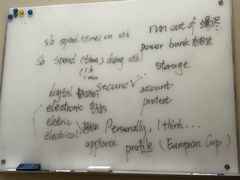 sb spend (time) on sth
run out of
power bank
sb spend (time) doing sth
storage.
1 h
1 min
digital
secure ✓
account
electronic
protect
electric
electrical
Personally, I think...
appliance
profile (European Cup)